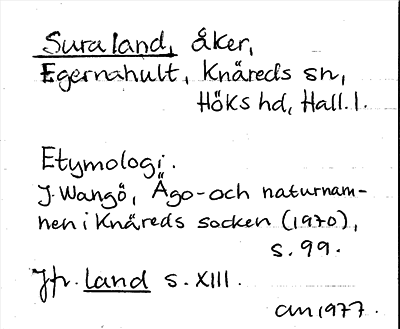 Sura land, åker,
Egernahult, Knäreds sn,
Höks hd, Hall. l.
Etymologi.
J. Wangö, Ägo- och naturnam-
nen i Knäreds socken (1970),
s. 99.
Jfr. land s. XIII.
am 1977.